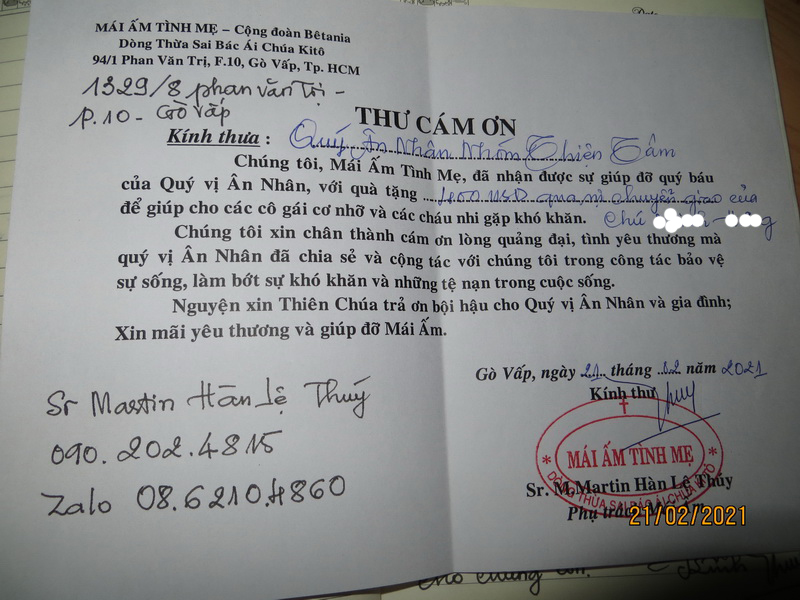 MÁI ẤM TÌNH MẸ – Cộng đoàn Bêtania
Dòng Thừa Sai Bác Ái Chúa Kitô
94/1 Phan Văn Trị, F.10, Gò Vấp, Tp. HCM
1329/8 phan văn Trị -
P.10 - Gò Vấp
THƯ CÁM ƠN
Kính thưa : Quý Ân Nhân Nhóm Thiện Tâm
Chúng tôi, Mái Ấm Tình Mẹ, đã nhận được sự giúp đỡ quý báu
của Quý vị Ân Nhân, với quà tặng 400 USD qua sự chuyển giao của
để giúp cho các cô gái cơ nhỡ và các cháu nhi gặp khó khăn. Chú
Chúng tôi xin chân thành cám ơn lòng quảng đại, tình yêu thương mà
quý vị Ân Nhân đã chia sẻ và cộng tác với chúng tôi trong công tác bảo vệ
sự sống, làm bớt sự khó khăn và những tệ nạn trong cuộc sống.
Nguyện xin Thiên Chúa trả ơn bội hậu cho Quý vị Ân Nhân và gia đình;
Xin mãi yêu thương và giúp đỡ Mái Ấm.
Gò Vấp, ngày 21 tháng 02 năm 2021
Kính thư
Sr Martin Hàn Lệ Thúy
090.202.4815
Zalo 08.6210.4860
MÁI ẤM TÌNH MẸ
DÒNG THỪA SAI BÁC ÁI CHÚA KITÔ
Sr. M.Martin Hàn Lệ Thúy
Phụ trách
21/02/2021